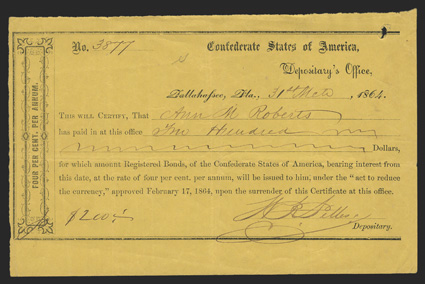 No. 3877
Confederate States of America,
Depositary's Office,
Tallahassee, Fla., 31st Mch, 1864.
THIS WILL CERTIFY, That Ann M Roberts
has paid in at this office Two Hundred
Dollars,
for which amount Registered Bonds, of the Confederate States of America, bearing interest from
this date, at the rate of four per cent. per annum, will be issued to him, under the "act to reduce
the currency," approved February 17, 1864, upon the surrender of this Certificate at this office.
$200
Depositary.
FOUR PER CENT. PER ANNUM.